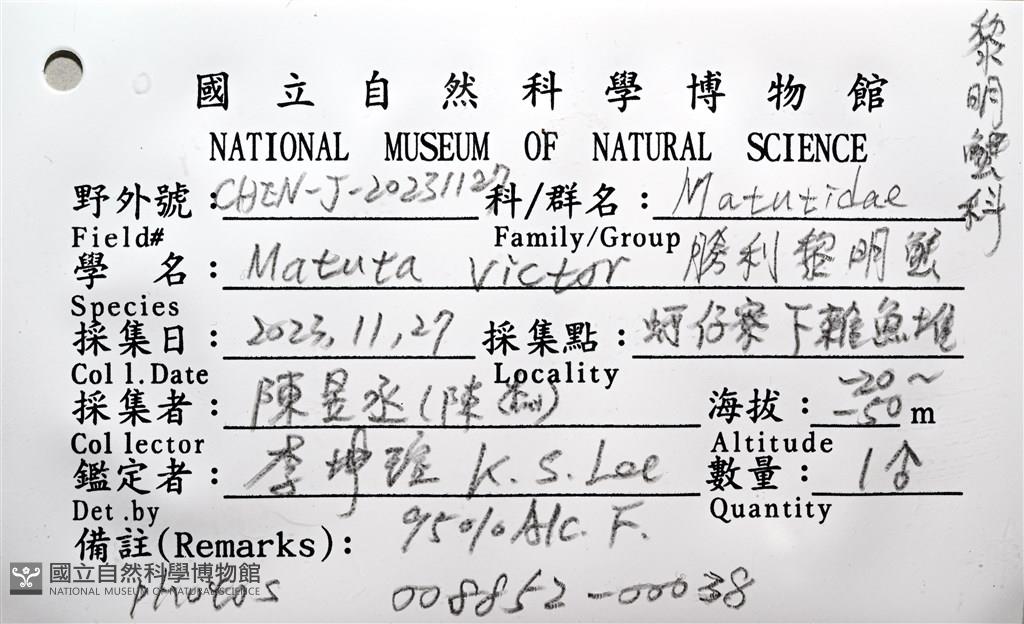 國立自然科學博物館
NATIONAL MUSEUM OF NATURAL SCIENCE
黎明蟹科
野外號：CHEN-J-20231127 科/群名：Matutidae
Field# Family/Group
學 名：Matuta victor 勝利黎明蟹
Species
採集日：2023,11,27 採集點：蚵仔寮下雜魚堆
Coll.Date Locality
採集者：陳昱丞(陳) 海拔：-20~-50m
Collector Altitude
鑑定者：李坤瑄 K.S.Lee 數量：1♂
Det.by Quantity
備註(Remarks)：95%Alc. F.
國立自然科學博物館
NATIONAL MUSEUM OF NATURAL SCIENCE
photos 008852-00038